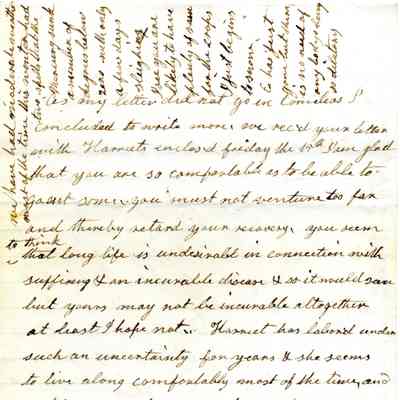 As my letter did not go in Cornelias I
concluded to write more. we recd your letter
with Harriets enclosed friday the 19th I am glad
that you are so comfortable as to be able to
go out some. you must not venture too far
and thereby retard your recovery. you seem
to think
that long life is undesirabl in connection with
suffering & an incurable disease & so it would seem
but yours may not be incurable altogether
at least I hope not. Harriet has labord under
such an uncertainty for years & she seems
to live along comfortably most of the time, and
we have had considerable winter
most of the time this month had
two spells that the
mercury sunk
a number of
degrees below
zero. with only
a few days
sleighing
I see you are
likely to have
plenty of ice
for the
I just begin
E has just
gone but there
is no need of
any body being
solitary